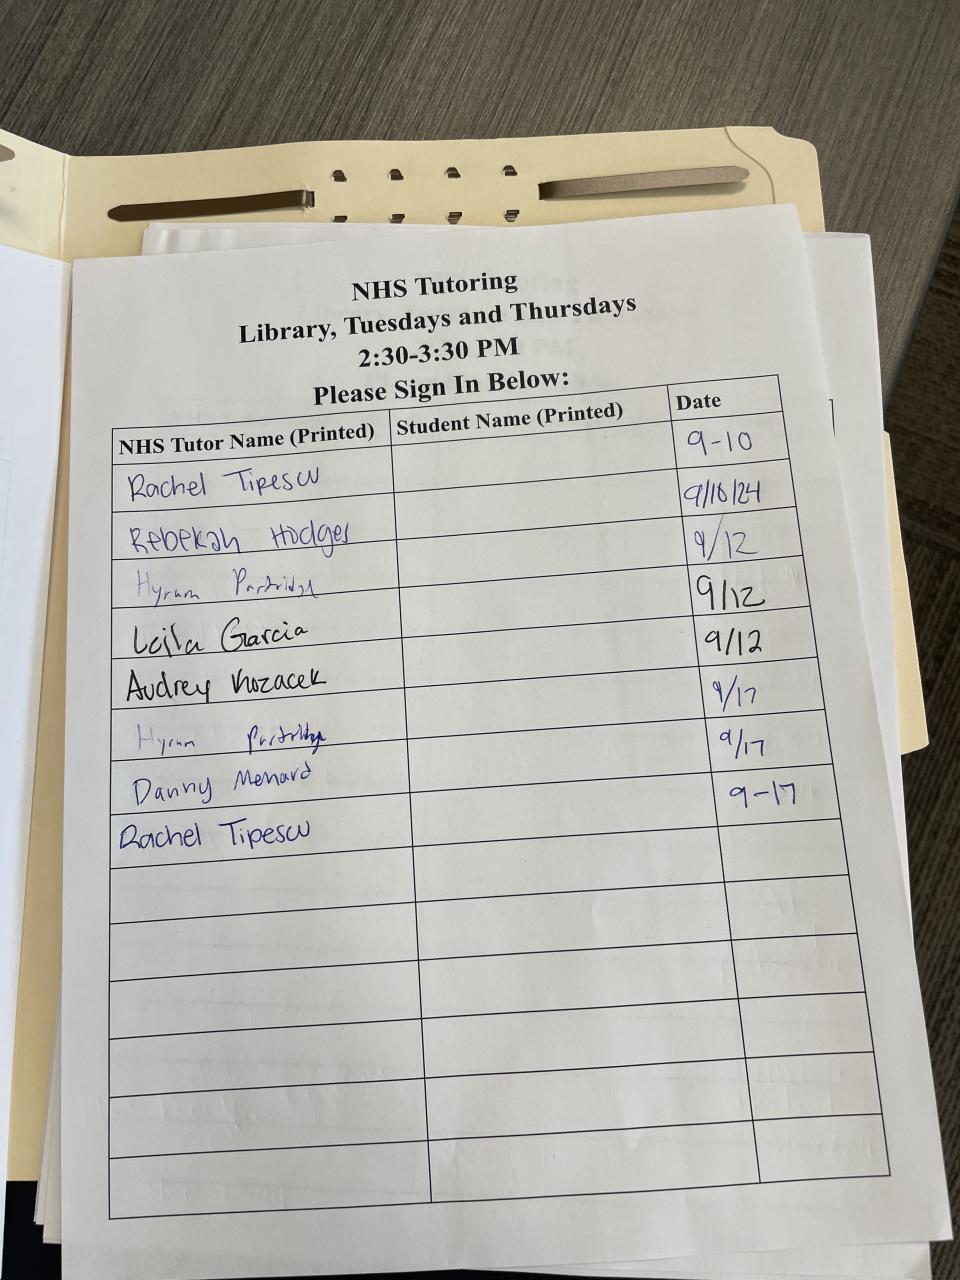 NHS Tutoring
Library, Tuesdays and Thursdays
2:30-3:30 PM
Please Sign In Below:
NHS Tutor Name (Printed) Student Name (Printed) Date
Rachel Tipescu 9-10
Rebekah Hodges 9/10/24
Hyrum Partridge 9/12
Leila Garcia 9/12
Audrey Kozacek 9/12
Hyrum Partridge 9/17
Danny Menard 9/17
Rachel Tipescu 9-17